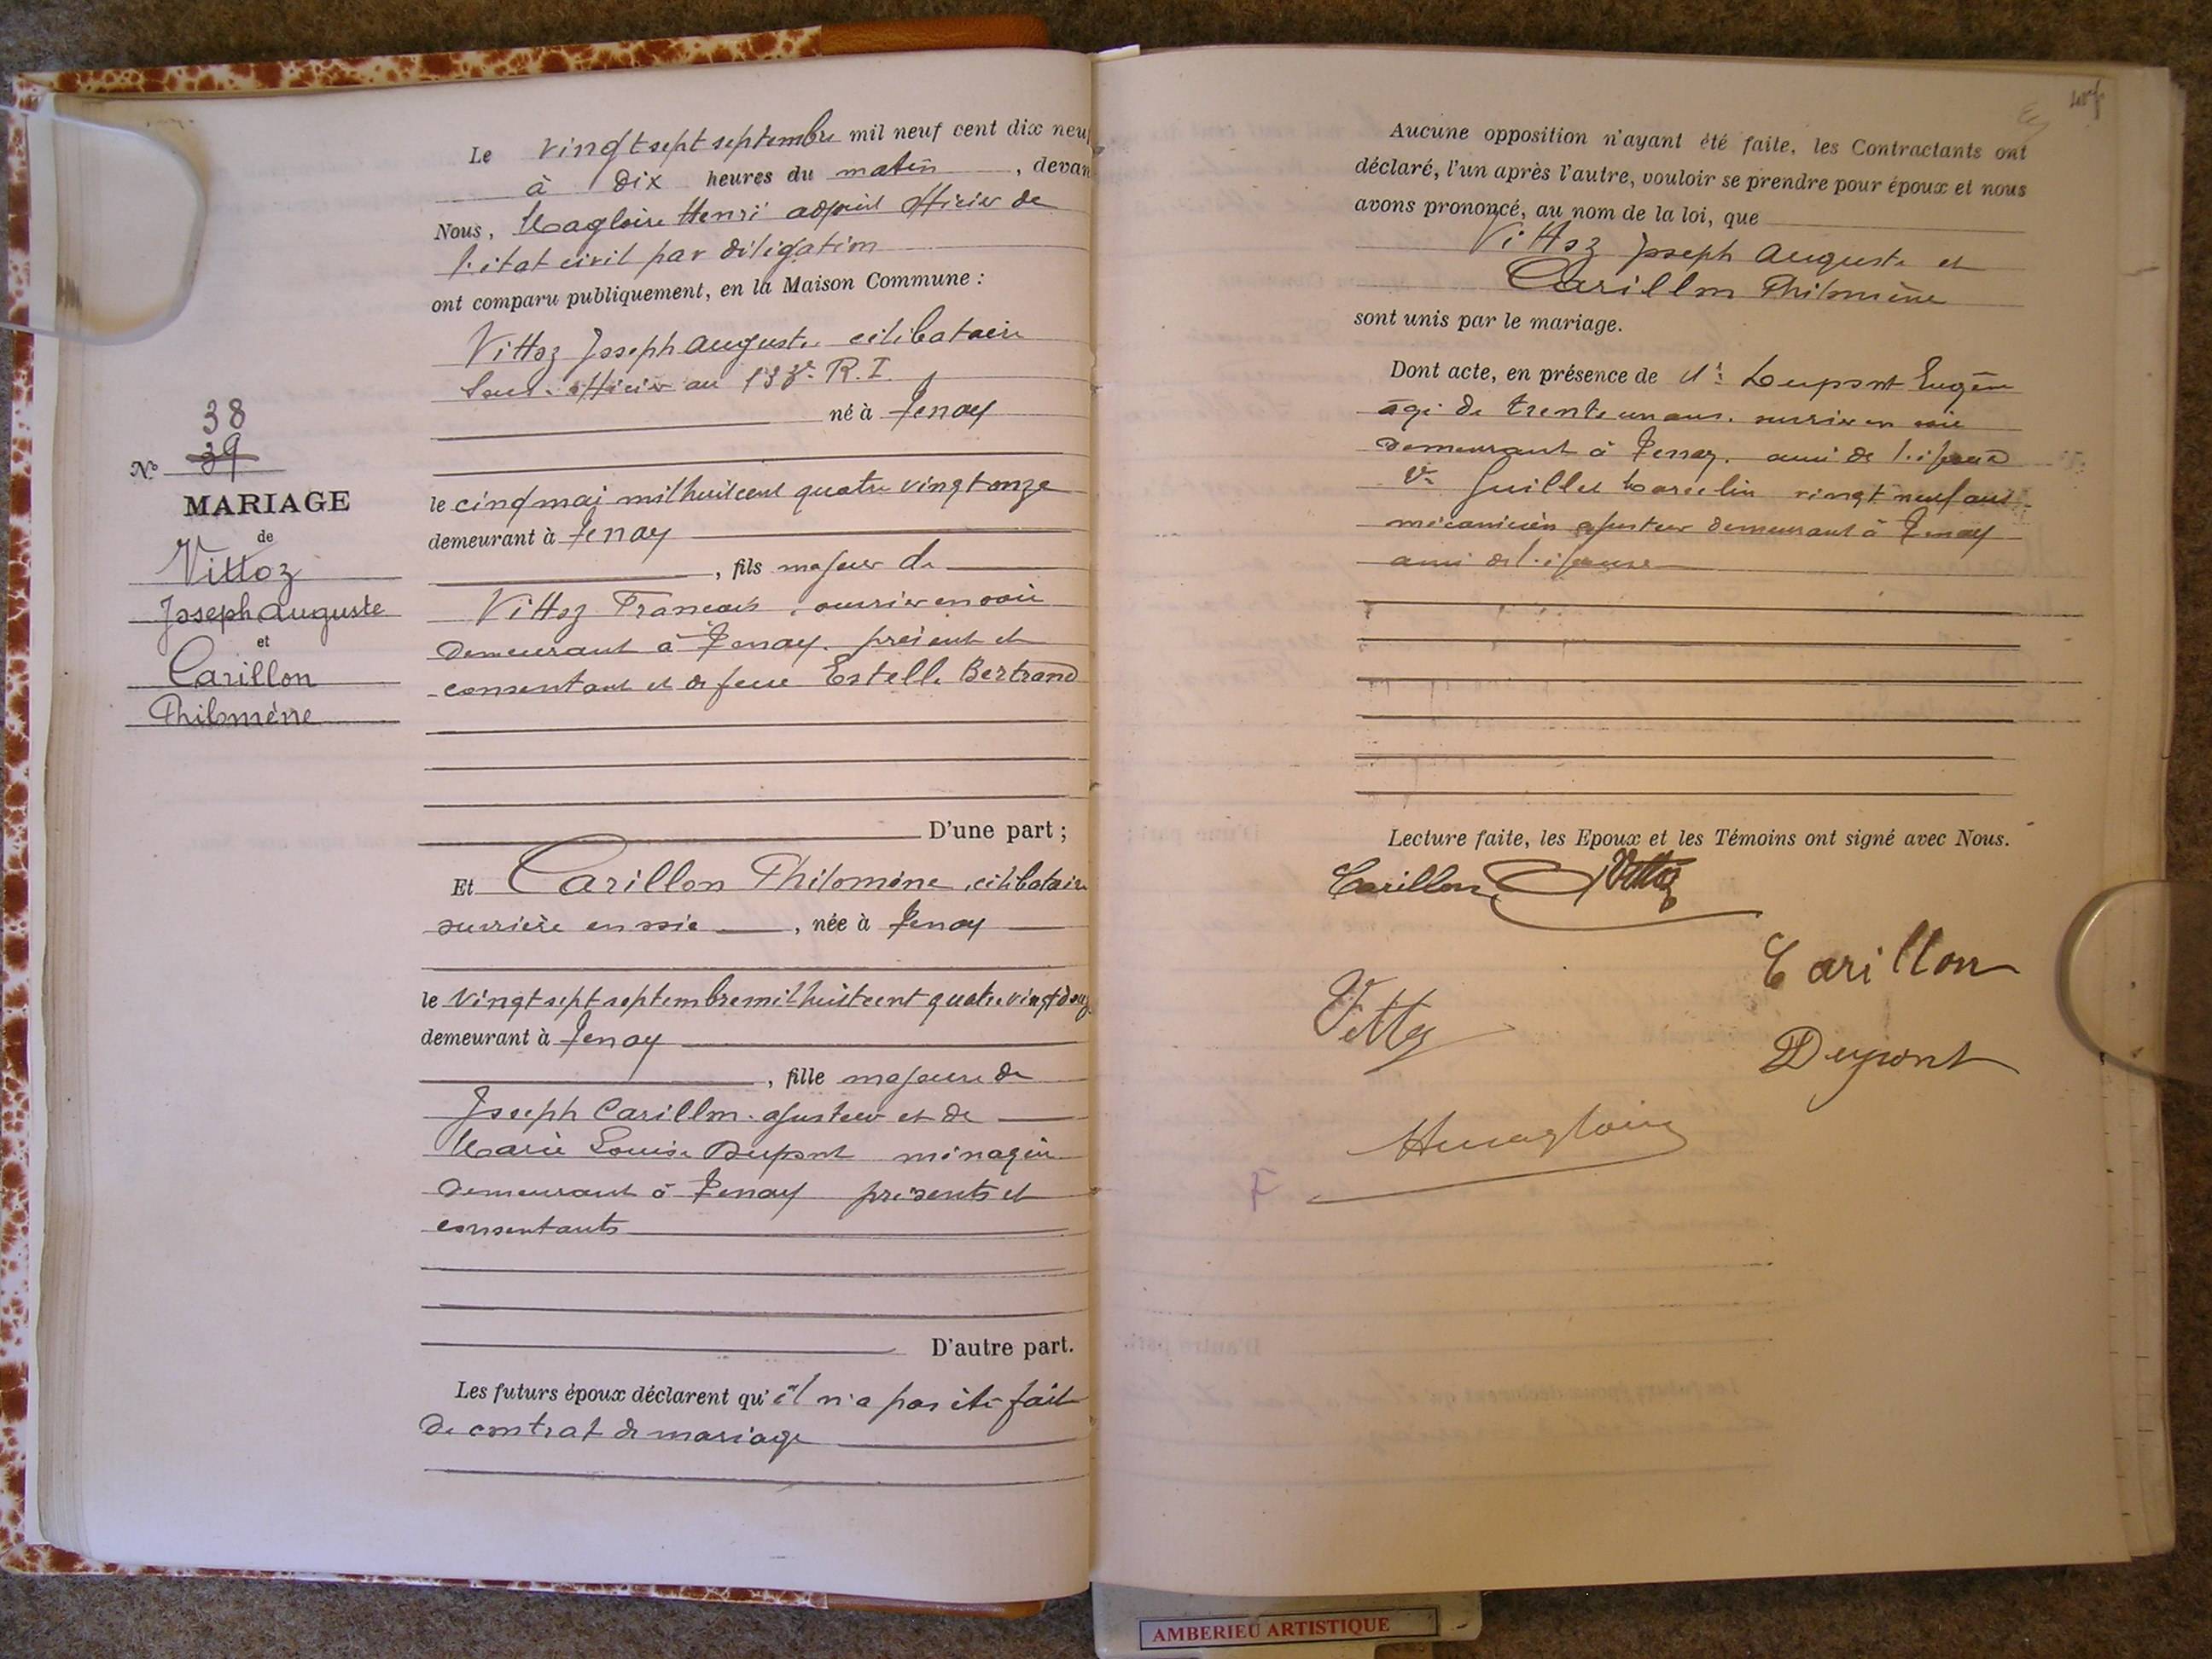 38
N° 39
MARIAGE
de
Vittoz
Joseph Auguste
et
Carillon
Philomène
Le vingt sept septembre mil neuf cent dix neuf
à dix heures du matin, devan
Nous, Magloire Henri adjoint officier de
l'état civil par déligation
ont comparu publiquement, en la Maison Commune :
Vittoz Joseph Auguste célibataire
Sous-officier au 133e R.I.
né à Tenay
le cinq mai mil huit cent quatre vingt onze
demeurant à Tenay
, fils majeur de
Vittoz Francois, ouvrier en soie
demeurant à Tenay. présent et
consentant et de feue Estelle Bertrand
D'une part ;
Et Carillon Philomène, célibataire
ouvrière en soie, née à Tenay
le vingt sept septembre mil huit cent quatre vingt douz
demeurant à Tenay
, fille majeure de
Joseph Carillon. ajusteur et de
Marie Louise Dupont ménagère
demeurant à Tenay présents et
consentants
D'autre part.
Les futurs époux déclarent qu'il n'a pas été fait
de contrat de mariage
Aucune opposition n'ayant été faite, les Contractants ont
déclaré, l'un après l'autre, vouloir se prendre pour époux et nous
avons prononcé, au nom de la loi, que
Vittoz Joseph Auguste et
Carillon Philomène
sont unis par le mariage.
Dont acte, en présence de 1° Dupont Eugène
âgé de trente un ans. ouvrier en soie
demeurant à Tenay. ami de l'époux
Guillet Marcelin vingt neuf ans
mécanicien ajusteur demeurant à Tenay
ami de l'épouse
Lecture faite, les Epoux et les Témoins ont signé avec Nous.
Carillon Vittoz
Carillon
Vittoz
Dupont
Hmagloire
AMBERIEU ARTISTIQUE